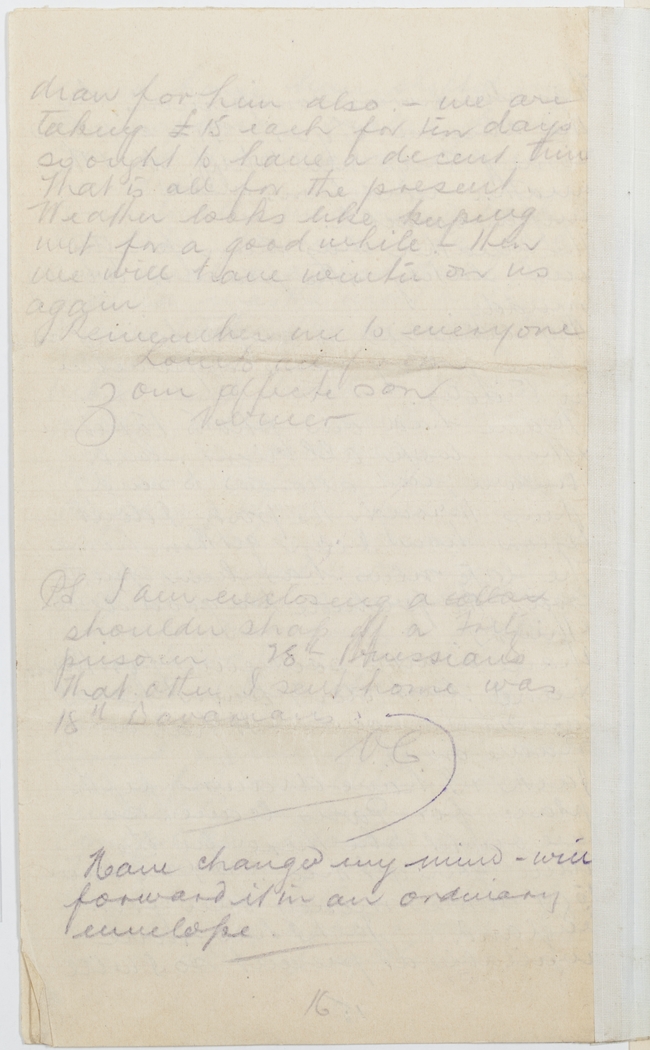 draw for him also. – we are
taking £15 each for ten days
so ought to have a decent time
That is all for the present
Weather looks like keeping
wet for a good while – then
we will have winter on us
again
Remember me to everyone
Love to
Your affecte son
PS I am enclosing a
shoulder strap of a Fritz
prisoner 78th Prussians
That other I sent home was
18th Bavarians.
V.C.
Have changed my mind – will
forward it in an ordinary
envelope.
16